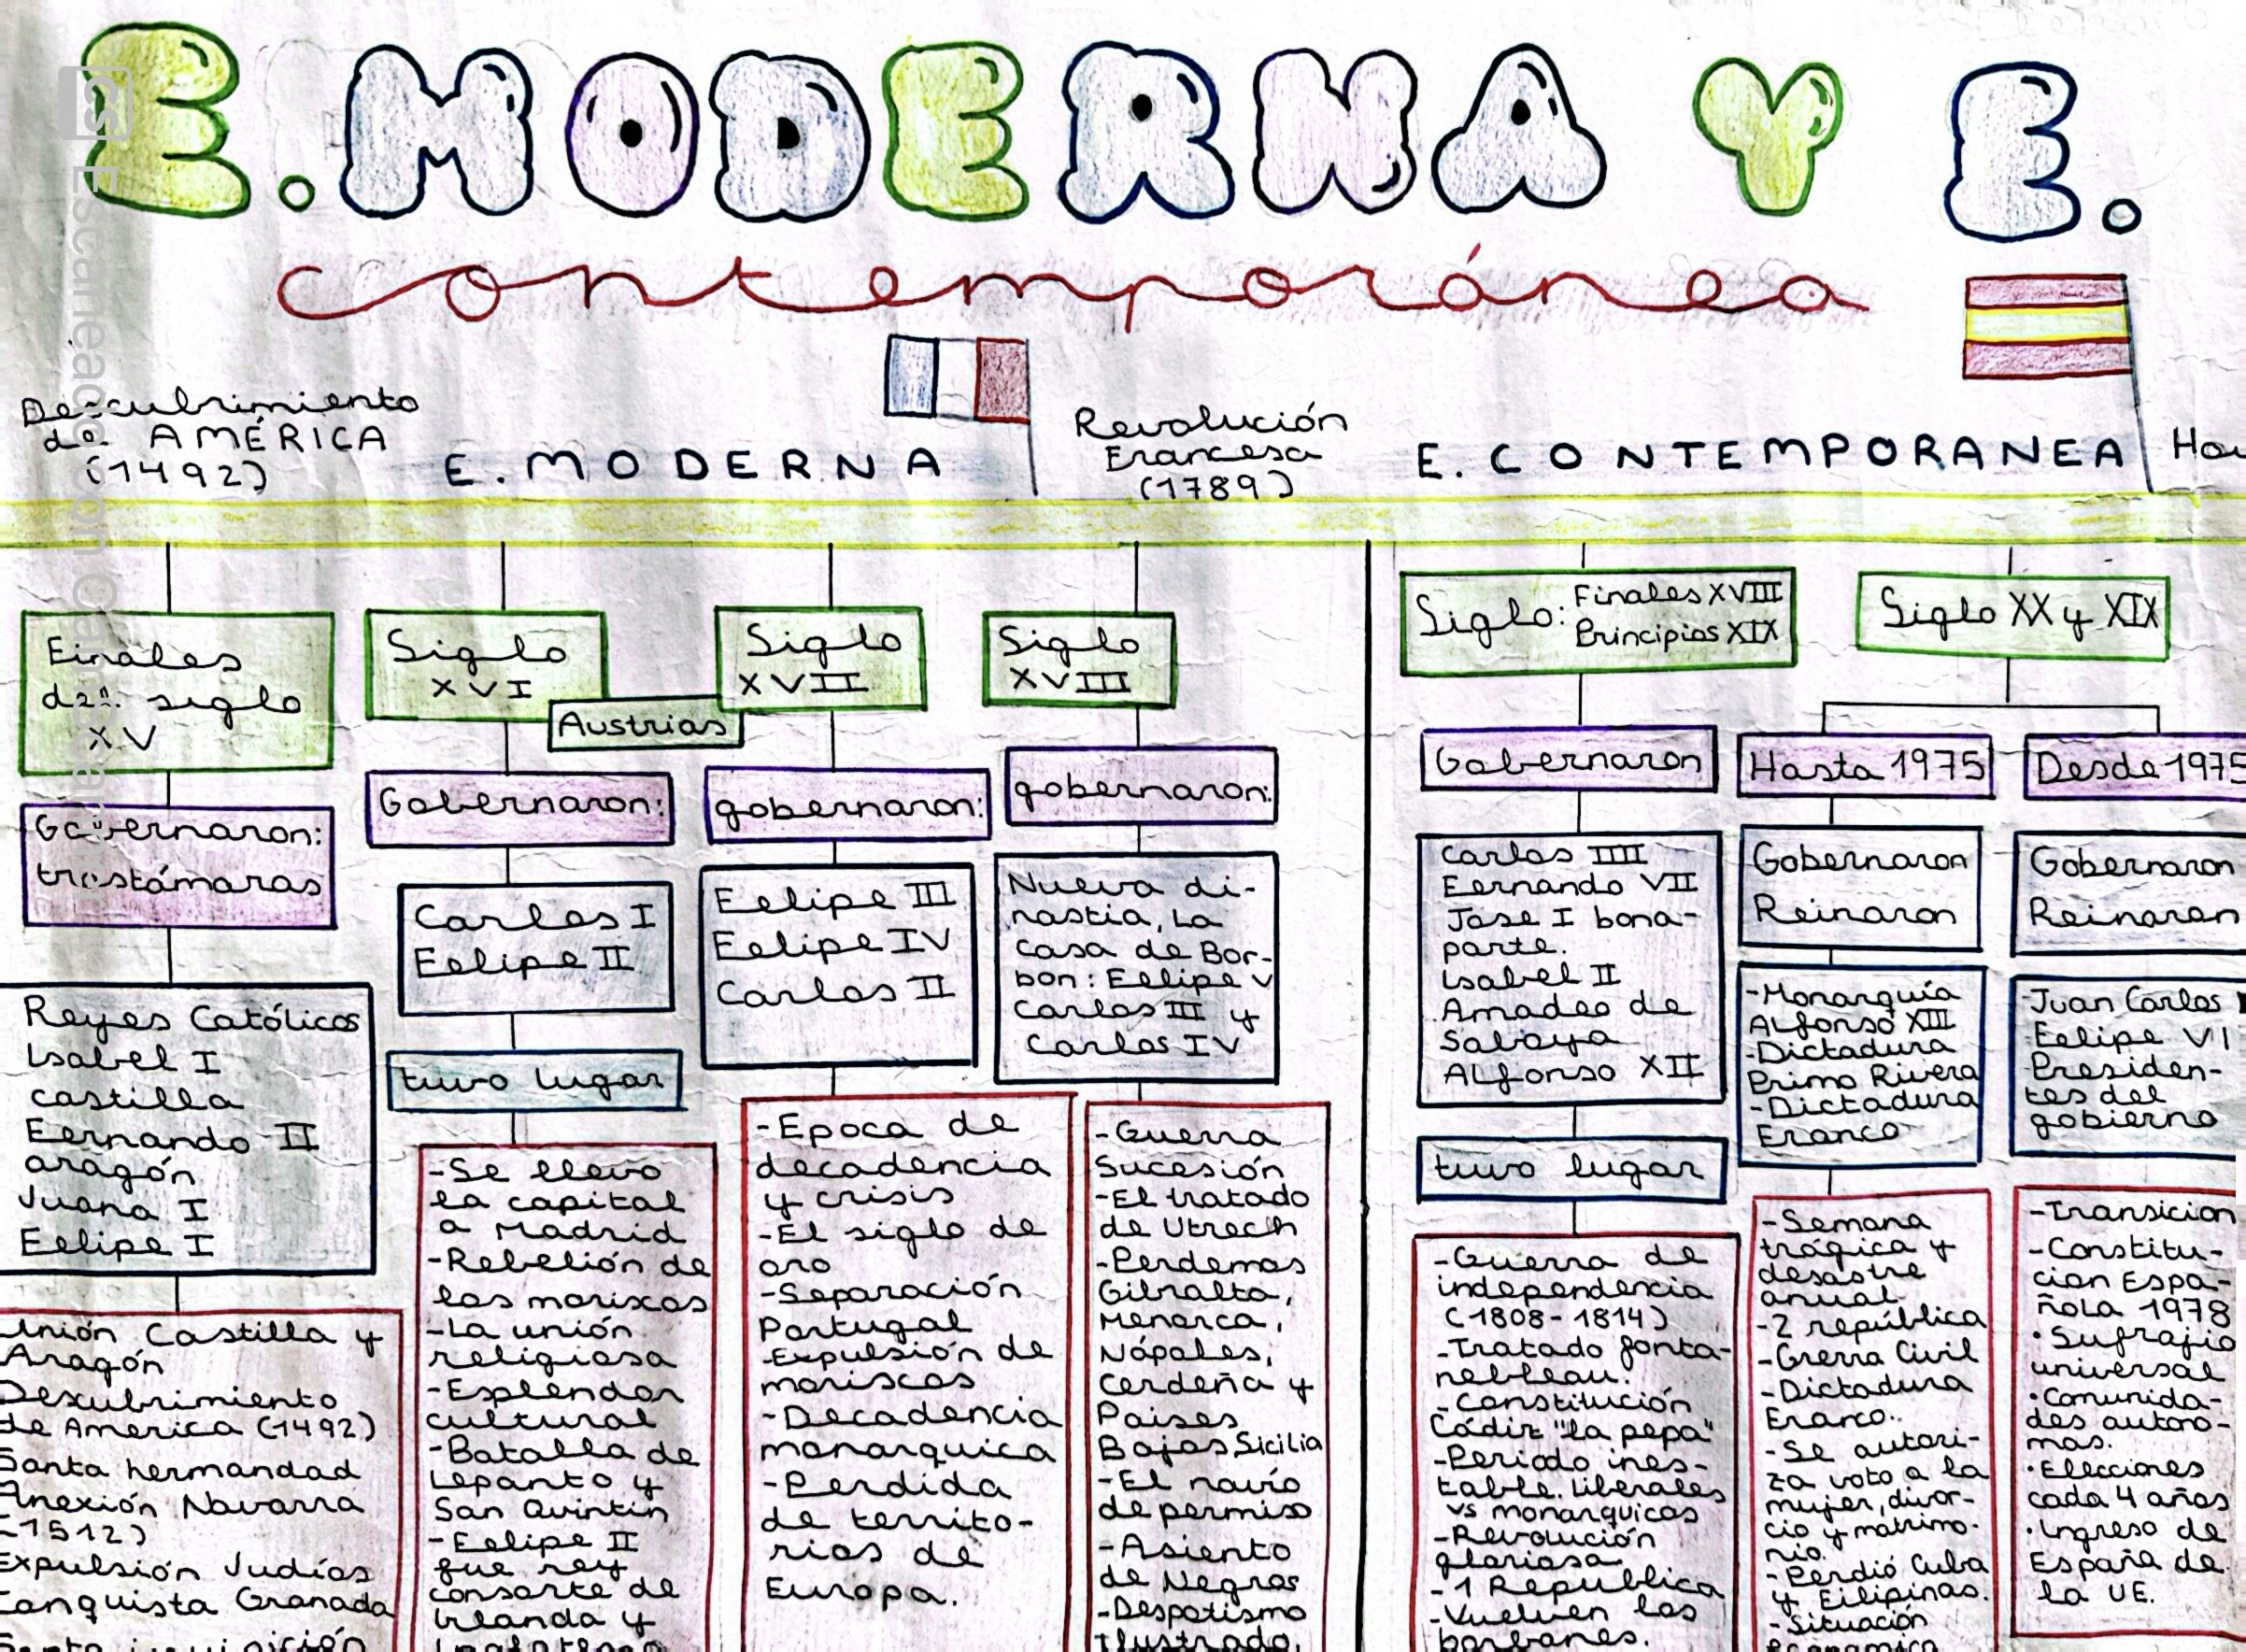 E. MODERNA Y E.
contemporánea
Descubrimiento
de AMÉRICA
(1492)
E. MODERNA
Revolución
Francesa
(1789)
E. CONTEMPORANEA
Escaneado con
Finales
del siglo
XV
Gobernaron:
trastámaras
Reyes Católicos
Isabel I
castilla
Fernando II
aragón
Juana I
Felipe I
Unión Castilla y
Aragón
Descubrimiento
de America (1492)
Santa hermandad
Anexión Navarra
(1512)
Expulsión Judíos
Conquista Granada
Siglo
XVI
Austrias
Gobernaron:
Carlos I
Felipe II
tuvo lugar
-Se llevo
la capital
a Madrid
-Rebelión de
los moriscos
-La unión
religiosa
-Esplendor
cultural
-Batalla de
Lepanto y
San Quintín
-Felipe II
fue rey
consorte de
Irlanda y
Siglo
XVII
gobernaron:
Felipe III
Felipe IV
Carlos II
-Epoca de
decadencia
y crisis
-El siglo de
oro
-Separación
Portugal
-Expulsión de
moriscos
-Decadencia
monarquica
-Perdida
de territo-
rios de
Europa.
Siglo
XVIII
gobernaron:
Nueva di-
nastia, La
casa de Bor-
bon: Felipe V
Carlos III y
Carlos IV
-Guerra
Sucesión
-El tratado
de Utrech
-Perdemos
Gibralta,
Menorca,
Nápoles,
Cerdeña y
Paises
Bajos Sicilia
-El navío
de permiso
-Asiento
de Negros
-Despotismo
Ilustrado.
Siglo: Finales XVIII
Principios XIX
Gobernaron
Carlos IIII
Fernando VII
Jose I bona-
parte.
Isabel II
Amadeo de
Saboya
Alfonso XII
tuvo lugar
-Guerra de
independencia
(1808-1814)
-Tratado fonta-
nebleau.
-Constitución
Cádiz "la pepa"
-Periodo ines-
table. liberales
vs monarquicos
-Revolución
gloriosa
-1 Republica
-Vuelven los
borbones.
Siglo XX y XIX
Hasta 1975
Gobernaron
Reinaron
-Monarquía
Alfonso XIII
-Dictadura
Primo Rivera
-Dictadura
Franco
-Semana
trágica y
desastre
anual
-2 república
-Grerra Civil
-Dictadura
Franco.
-Se autori-
za voto a la
mujer, divor-
cio y matrimo-
nio.
-Perdió Cuba
y Filipinas.
-Situación
Desde 1975
Gobernaron
Reinaron
-Juan Carlos
-Felipe VI
-Presiden-
tes del
gobierno
-Transicion
-Constitu-
cion Espa-
ñola 1978
•Sufrajio
universal
•Comunida-
des autono-
mas.
•Elecciones
cada 4 años
•Ingreso de
España de
la UE.